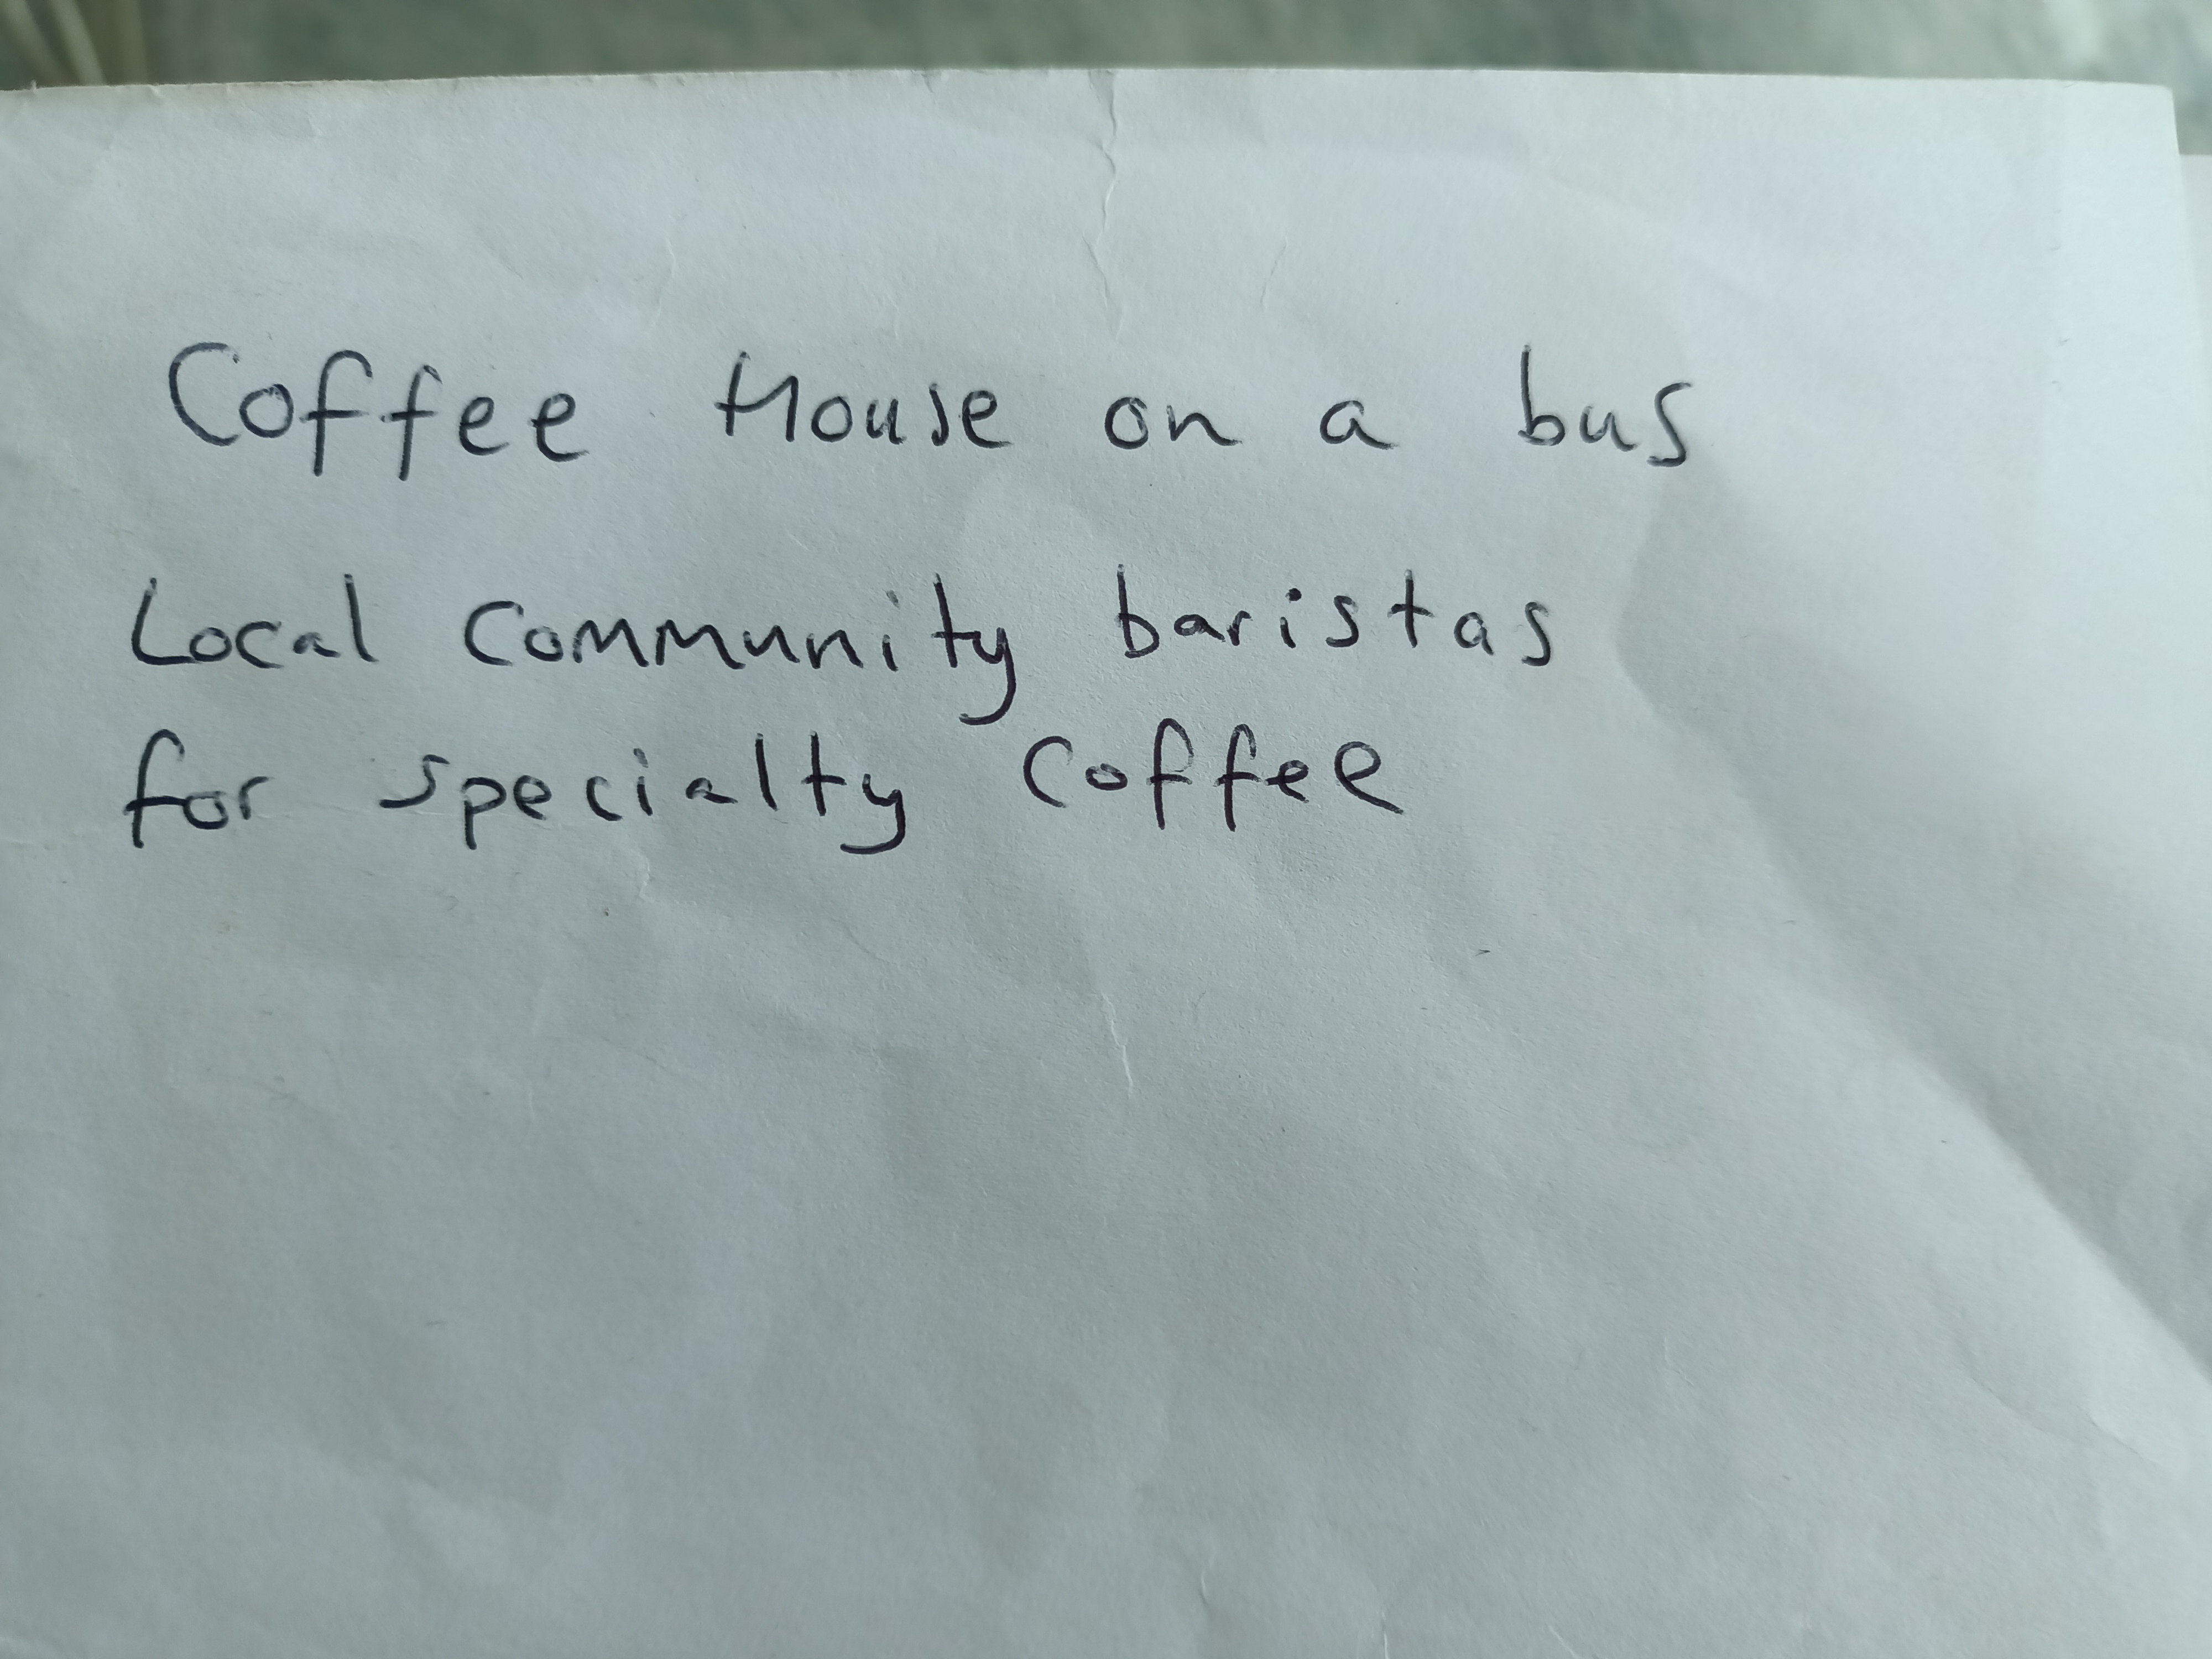 Coffee House on a bus
Local Community baristas
for specialty Coffee